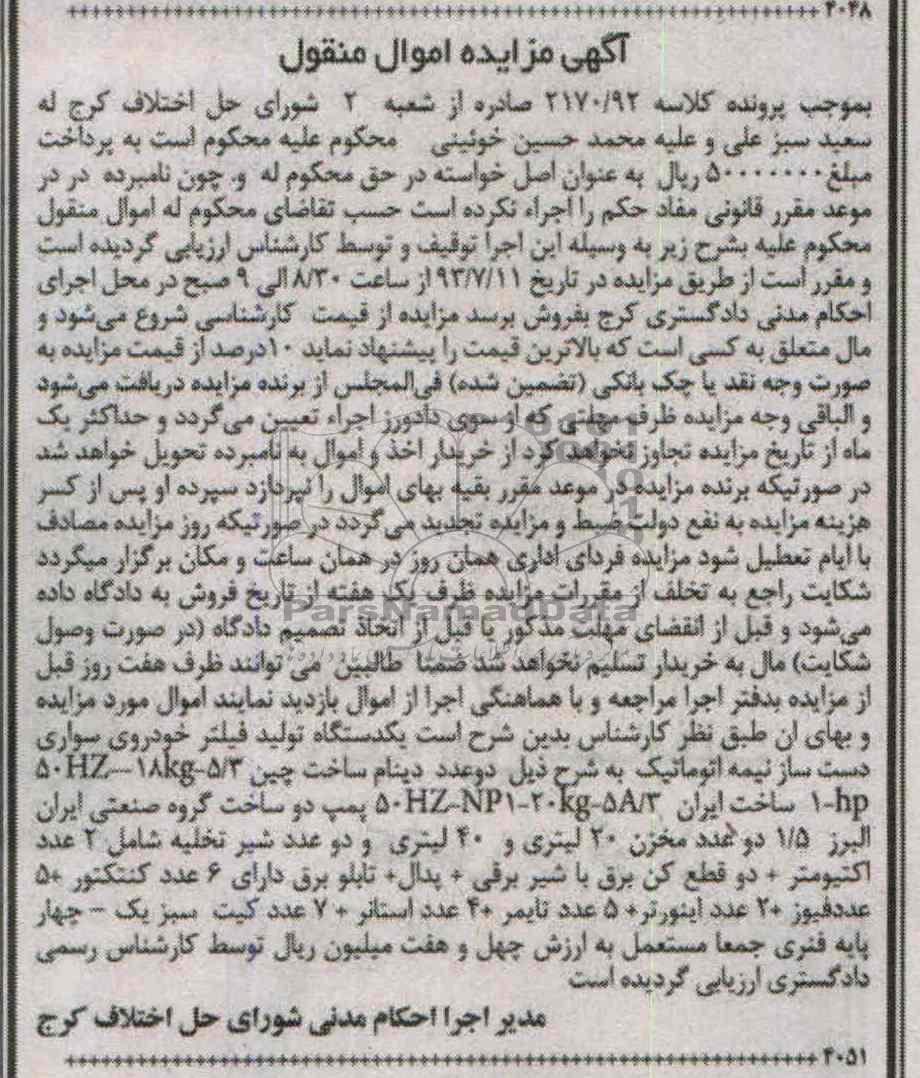 ۴۰۴۸
آگهی مزایده اموال منقول
بموجب پرونده کلاسه ۲۱۷۰/۹۲ صادره از شعبه ۲ شورای حل اختلاف کرج له
سعید سبز علی و علیه محمد حسین خوئینی محکوم علیه محکوم است به پرداخت
مبلغ ۵۰۰۰۰۰۰۰ ریال به عنوان اصل خواسته در حق محکوم له و. چون نامبرده در در
موعد مقرر قانونی مفاد حکم را اجراء نکرده است حسب تقاضای محکوم له اموال منقول
محکوم علیه بشرح زیر به وسیله این اجرا توقیف و توسط کارشناس ارزیابی گردیده است
و مقرر است از طریق مزایده در تاریخ ۹۳/۷/۱۱ از ساعت ۸/۳۰ الی ۹ صبح در محل اجرای
احکام مدنی دادگستری کرج بفروش برسد مزایده از قیمت کارشناسی شروع می‌شود و
مال متعلق به کسی است که بالاترین قیمت را پیشنهاد نماید ۱۰درصد از قیمت مزایده به
صورت وجه نقد یا چک بانکی (تضمین شده) فی‌المجلس از برنده مزایده دریافت می‌شود
و الباقی وجه مزایده ظرف مهلتی که از سوی دادورز اجراء تعیین می‌گردد و حداکثر یک
ماه از تاریخ مزایده تجاوز نخواهد کرد از خریدار اخذ و اموال به نامبرده تحویل خواهد شد
در صورتیکه برنده مزایده در موعد مقرر بقیه بهای اموال را نپردازد سپرده او پس از کسر
هزینه مزایده به نفع دولت ضبط و مزایده تجدید می‌گردد در صورتیکه روز مزایده مصادف
با ایام تعطیل شود مزایده فردای اداری همان روز در همان ساعت و مکان برگزار میگردد
شکایت راجع به تخلف از مقررات مزایده ظرف یک هفته از تاریخ فروش به دادگاه داده
ParsNamadData
می‌شود و قبل از انقضای مهلت مذکور یا قبل از اتخاذ تصمیم دادگاه (در صورت وصول
شکایت) مال به خریدار تسلیم نخواهد شد ضمنا طالبین می توانند ظرف هفت روز قبل
از مزایده بدفتر اجرا مراجعه و با هماهنگی اجرا از اموال بازدید نمایند اموال مورد مزایده
و بهای ان طبق نظر کارشناس بدین شرح است یکدستگاه تولید فیلتر خودروی سواری
دست ساز نیمه اتوماتیک به شرح ذیل دوعدد دینام ساخت چین ۵۰HZ--۱۸kg-۵/۳
۱-hp ساخت ایران ۵۰HZ-NP۱-۲۰kg-۵A/۳ پمپ دو ساخت گروه صنعتی ایران
البرز ۱/۵ دو عدد مخزن ۲۰ لیتری و ۴۰ لیتری و دو عدد شیر تخلیه شامل ۲ عدد
اکتیومتر + دو قطع کن برق با شیر برقی + پدال+ تابلو برق دارای ۶ عدد کنتکتور +۵
عددفیوز +۲ عدد اینورتر+ ۵ عدد تایمر +۴ عدد استاتر + ۷ عدد کیت سبز یک – چهار
پایه فنری جمعا مستعمل به ارزش چهل و هفت میلیون ریال توسط کارشناس رسمی
دادگستری ارزیابی گردیده است
مدیر اجرا احکام مدنی شورای حل اختلاف کرج
۴۰۵۱